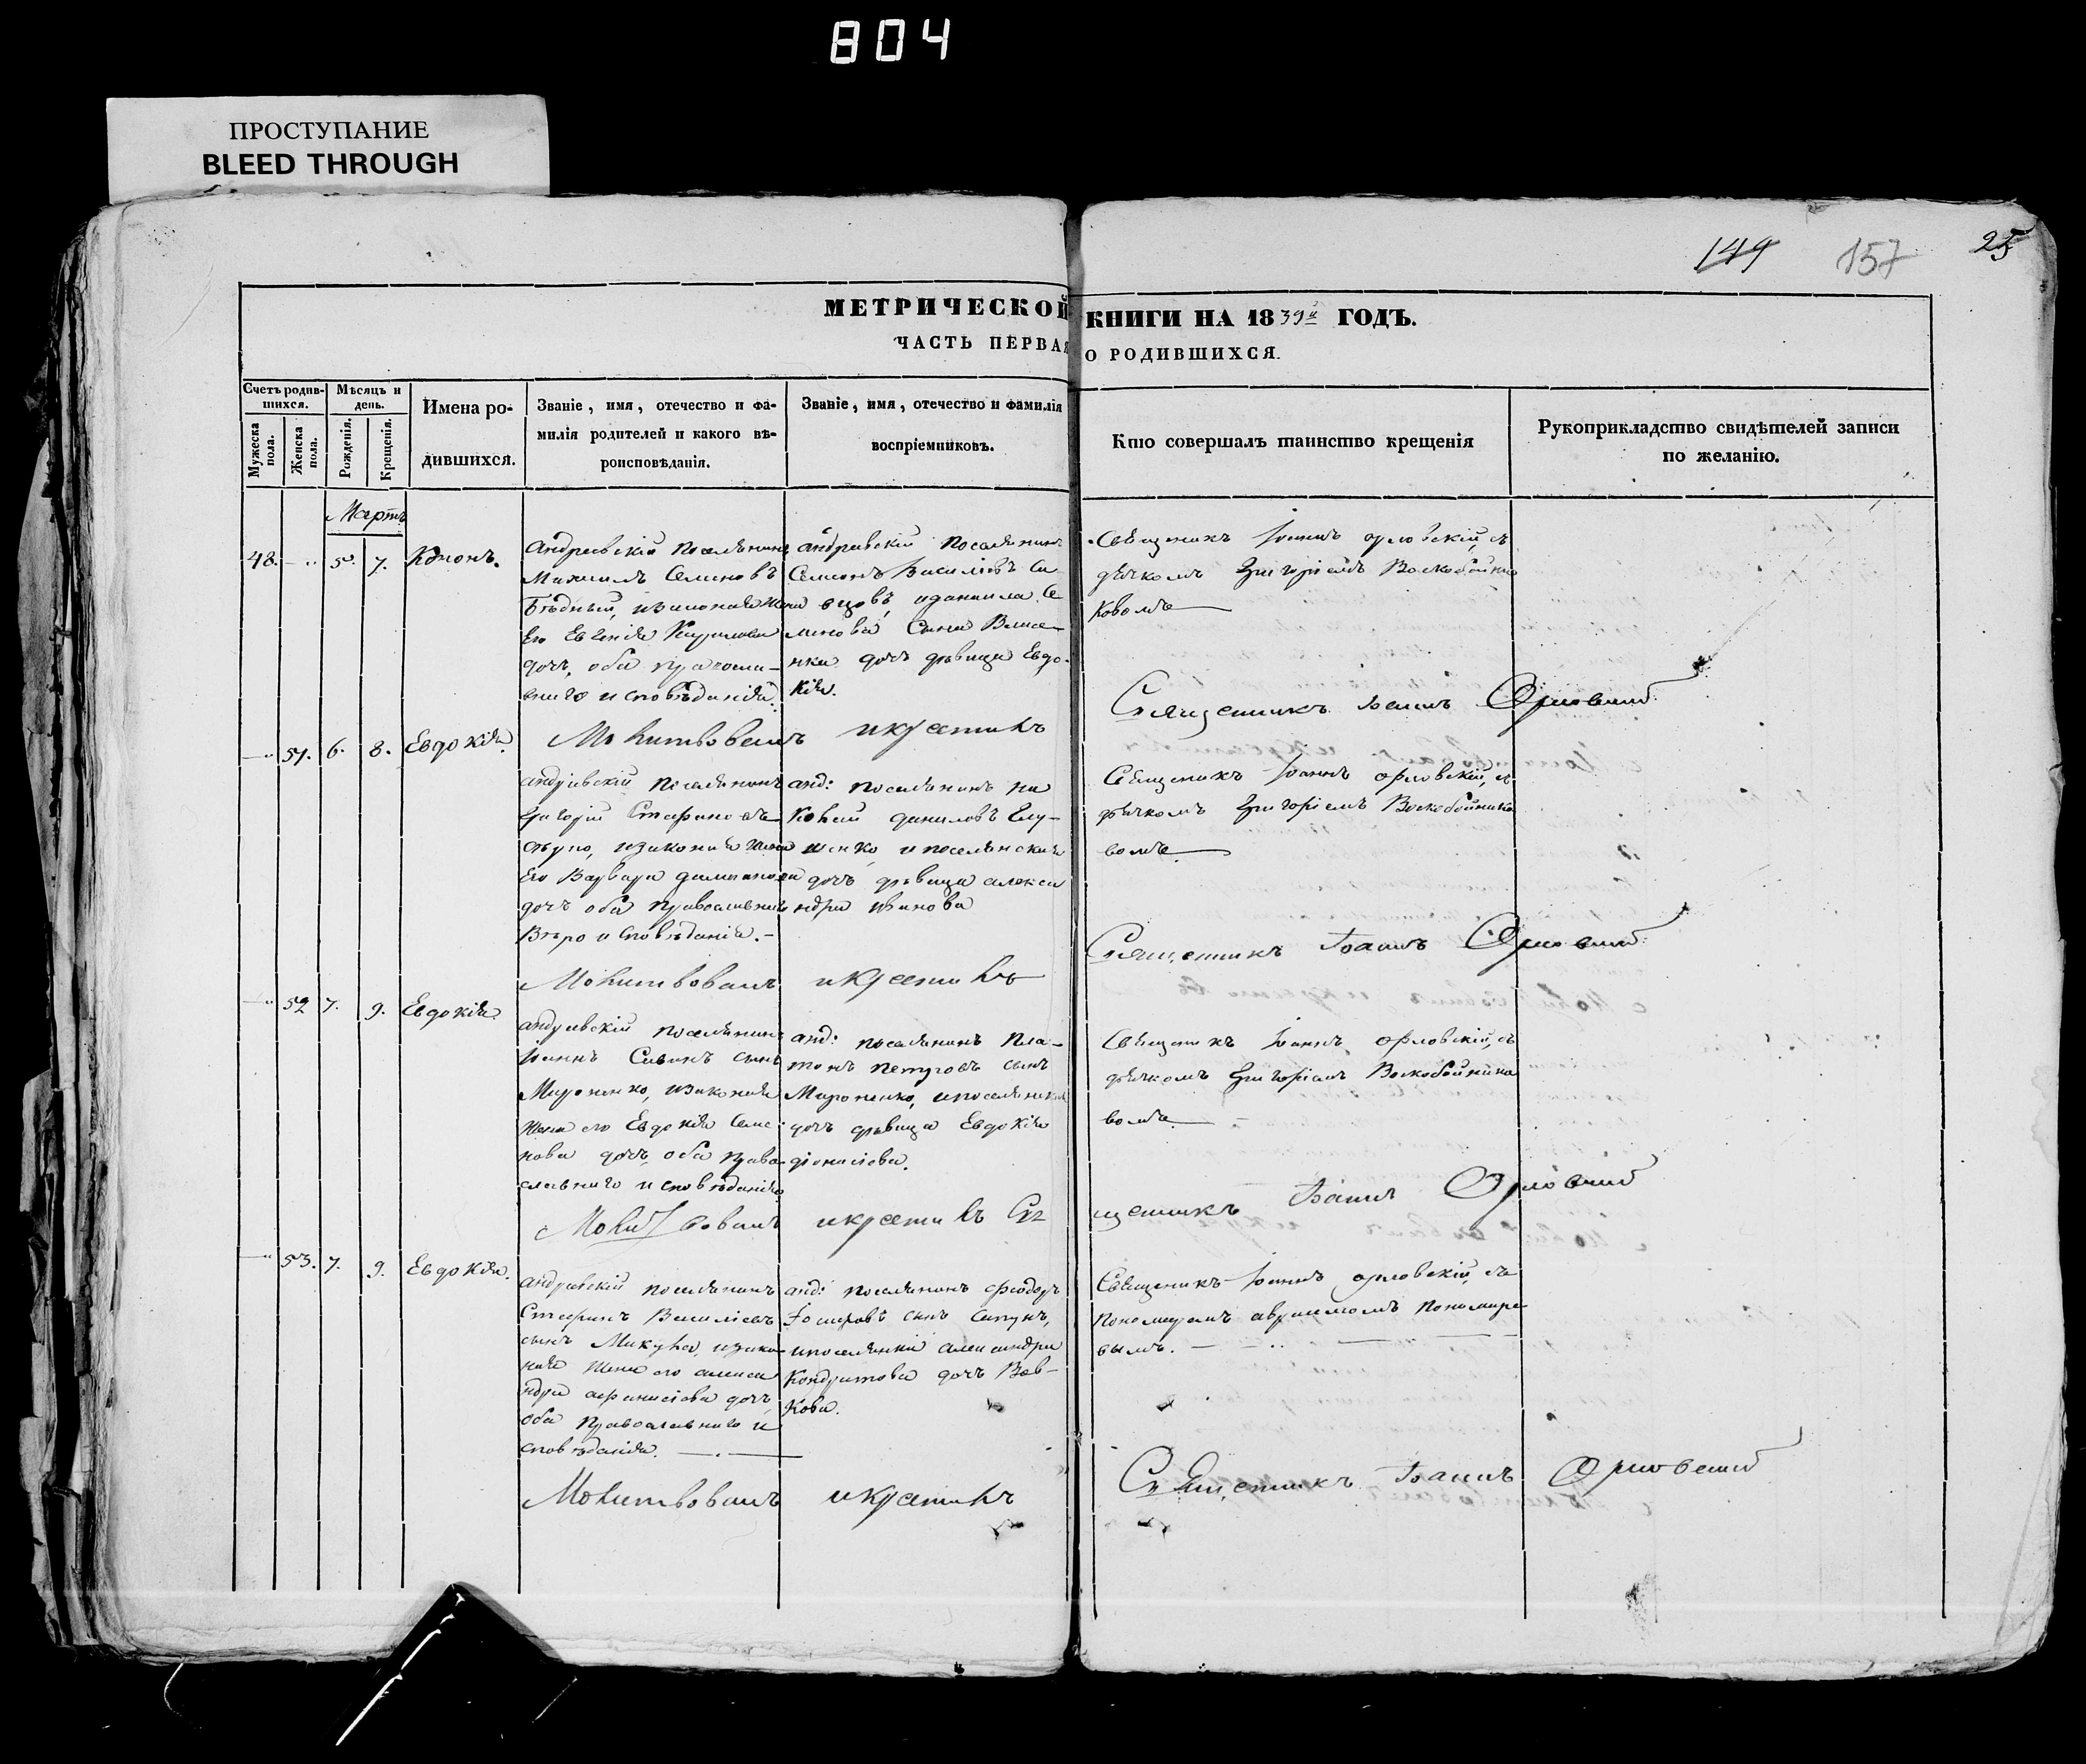 804
ПРОСТУПАНИЕ
BLEED THROUGH
149 157 25
МЕТРИЧЕСКОЙ КНИГИ НА 1839й ГОДЪ.
ЧАСТЬ ПЕРВАЯ О РОДИВШИХСЯ.
Счетъ родив-
шихся.
Мужеска пола.
Женска пола.
Мѣсяцъ и
день.
Рожденія.
Крещенія.
Имена ро-
дившихся.
Званіе, имя, отечество и фа-
милія родителей и какого вѣ-
роисповѣданія.
Званіе, имя, отечество и фамилія
воспріемниковъ.
Кто совершалъ таинство крещенія
Рукоприкладство свидѣтелей записи
по желанію.
Мартъ
48. 5. 7.
Андреевскій поселянинъ
Михаилъ Семеновъ
Бѣдный, изаконная жена
Его Евгенія Кирилова
дочь, оба православ-
наго исповѣданія.
андреевскій поселянинъ
Семенъ Василіевъ
идвица Евдо-
кія.
Священикъ Іоаннъ орловскій, съ
дячкомъ Григоріемъ Воскобойни
ковомъ
Молитвовалъ икрестилъ Священникъ Іоаннъ Орловскій
51. 6. 8. Евдокія.
андреевскій поселянинъ
Григорій Стефановъ
изаконная жена
Его Варвара
дочь оба православнаго
Вѣроисповѣданія.
анд: поселянинъ
даниловъ
шенко, ипоселянская
дочь дѣвица алекса
ндра иванова
Священикъ Іоаннъ орловскій, съ
дячкомъ Григоріемъ Воскобойнико
вомъ
Молитвовалъ икрестилъ Священникъ Іоаннъ Орловскій
52 7. 9. Евдокія.
андреевскій поселянинъ
Іоаннъ Савинъ сынъ
Мироненко, изаконная
жена его Евдокія Семе
нова дочь, оба право-
славнаго исповѣданія
анд: поселянинъ Пла-
тонъ Петровъ сынъ
Мироненко, ипоселянская
дочь дѣвица Евдокія
діонисіева.
Священикъ Іоаннъ орловскій, съ
дячкомъ Григоріемъ Воскобойнико
вомъ
Молитвовалъ икрестилъ Священникъ Іоаннъ Орловскій
53. 7. 9. Евдокія.
андреевскій поселянинъ
Стефанъ Василіевъ
сынъ Микула, изако-
ная жена его алекса
ндра афанасіева дочь
оба православнаго и
сповѣданія.
анд: поселянинъ Феодоръ
Іосифовъ сынъ Сапунъ,
ипоселянка александра
Кондратова дочь Вов-
кова.
Священикъ Іоаннъ орловскій, съ
пономаремъ авраамомъ Пономаре
вымъ.
Молитвовалъ икрестилъ Священникъ Іоаннъ Орловскій